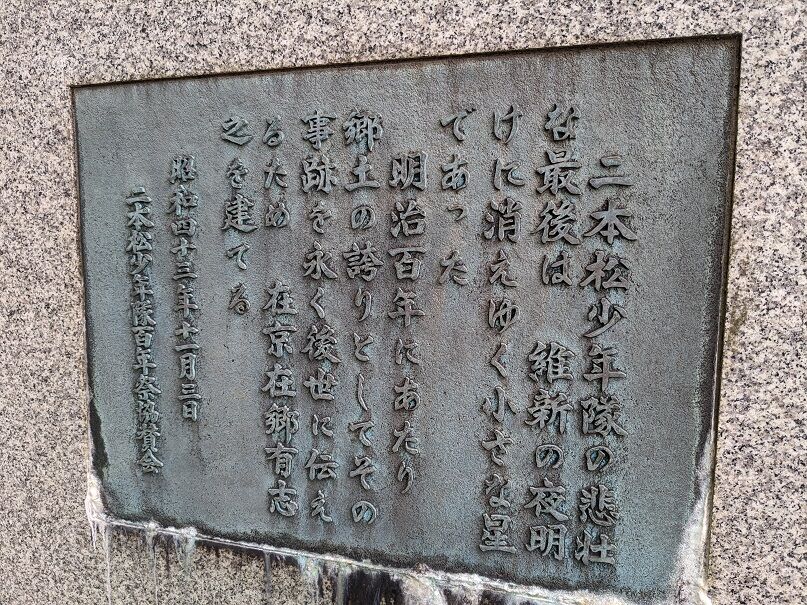 二本松少年隊の悲壮
な最後は　維新の夜明
けに消えゆく小さな星
であった
明治百年にあたり
郷土の誇りとしてその
事跡を永く後世に伝え
るため　在京在郷有志
之を建てる
昭和四十三年十一月三日
二本松少年隊百年祭協賛会